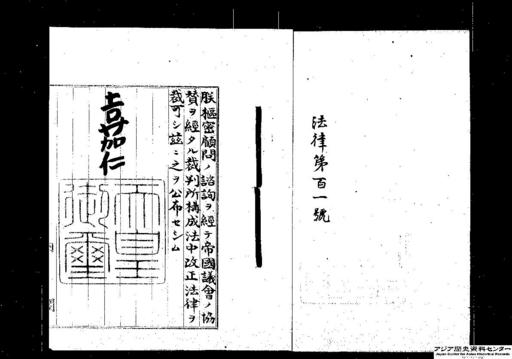 法律第百一號
朕樞密顧問ノ諮詢ヲ經テ帝國議會ノ協
贊ヲ經タル裁判所構成法中改正法律ヲ
裁可シ茲ニ之ヲ公布セシム
嘉仁
天皇
御璽
アジア歴史資料センター
Japan Center for Asian Historical Records